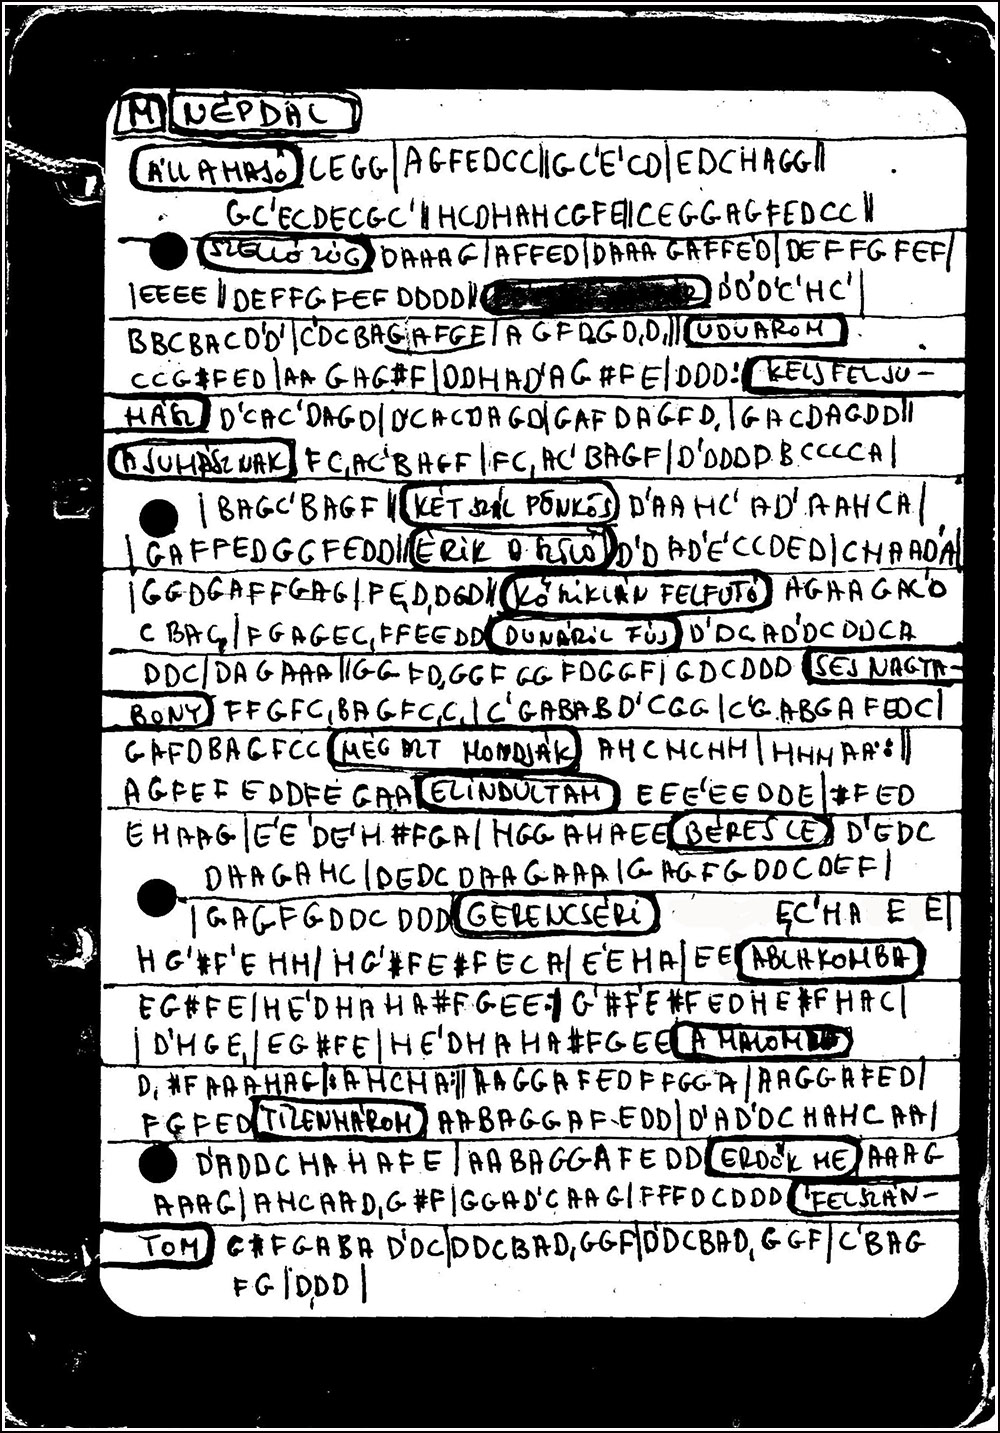 M NÉPDAL
ÁLLAMASÓ CEGG|AGFEDCC||GC'E'CD|EDCHAGG||
GC'ECDECGC'||HCDHAHCGFE||CEGGAGFEDCC||
SZELLŐ ZÚG DAAAG|AFFED|DAAA GAFFED|DEFFG FEF|
|EEEE||DEFFG FEF DDDD|| D'D'D'C'HC'|
BBCBACD'D'|C'DCBAGAFGE|AGFD,GD,D,|| UDVAROM
CCG#FED|AA GAG#F|DDHAD'AG#FE|DDD: KELJ FEL JU-
HÁSZ D'CAC'DAGD|D'CACDAGD|GAF DAGFD,|GACDAGDD||
A JUHÁSZNAK FC,AC'BAGF|FC,AC'BAGF|D'DDDD BCCCCA|
|BAGC'BAGF|| KÉT SZÁL PÜNKÖS D'AAHC'AD'AAHCA|
|GAFFEDGGFEDD|| ÉRIK A SZŐLŐ D'D AD'E'CCDED|CHAAD'A|
|GGDGAFFGAG|FE,D,DGD|| KŐ SZIKLÁN FELFUTÓ AGAAGAC'D
C BAG,|FGAGEC,FFEEDD DUNÁRÓL FÚJ D'DCAD'DCDDCA
DDC|DAGAAA||GG FD,GGFGG FDGGF|GDCDDD SEJ NAGTA-
BONY FFGFC,BAGFC,C,|C'GABABD'CGG|C'G.ABGAFEDC|
GAFDBAGFCC MÉG AZT MONDJÁK AHCHCHH|HHHAA:||
AGFEFEDDFEGAA ELINDULTAM EEE'EEDDE|#FED
EHAAG|E'E'DE'H#FGA|HGGAHAEE BÉRES LE D'EDC
DAAGAHC|DEDC DAAGAAA|GAGFGDDCDEF|
|GAGFGDDCDDD GERENCSÉRI EC'HA E E|
HG'#F'EHH|HG'#FE#FECA|E'EHA|EE ABLAKOMBA
EG#FE|HE'DHAHA#FGEE:|G'#F'E#FEDHE#FHAC|
|D'HGE,|EG#FE|HE'DHAHA#FGEE A MALOM
D,#FAAAHAG|:AHCHA:||AAGGAFEDFFGGA|AAGGAFED|
FGFED TIZENHÁROM AABAGGAFEDD|D'AD'DCHAHCAA|
D'ADDCHAHAFE|AABAGGAFEDD ERDŐK ME AAAG
AAAG|AHCAAD,G#F|GGAD'CAAG|FFFDCDDD FELSZÁN-
TOM G#FGABA D'DC|DDCBAD,GGF|D'DCBAD,GGF|C'BAG
FG|DDD|